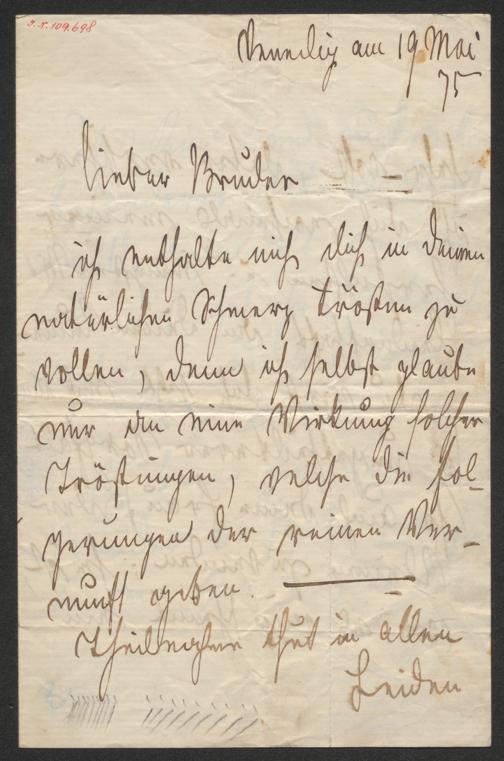 J.N. 109.698
Venedig am 19 Mai
75
lieber Bruder
ich enthalte mich dich in deinem
natürlichen Schmerz trösten zu
wollen, denn ich selbst glaube
nur an eine Wirkung solcher
Tröstungen, welche die Fol-
gerungen der reinen Ver-
nunft geben.
Theilnahme thut in allen
Leiden